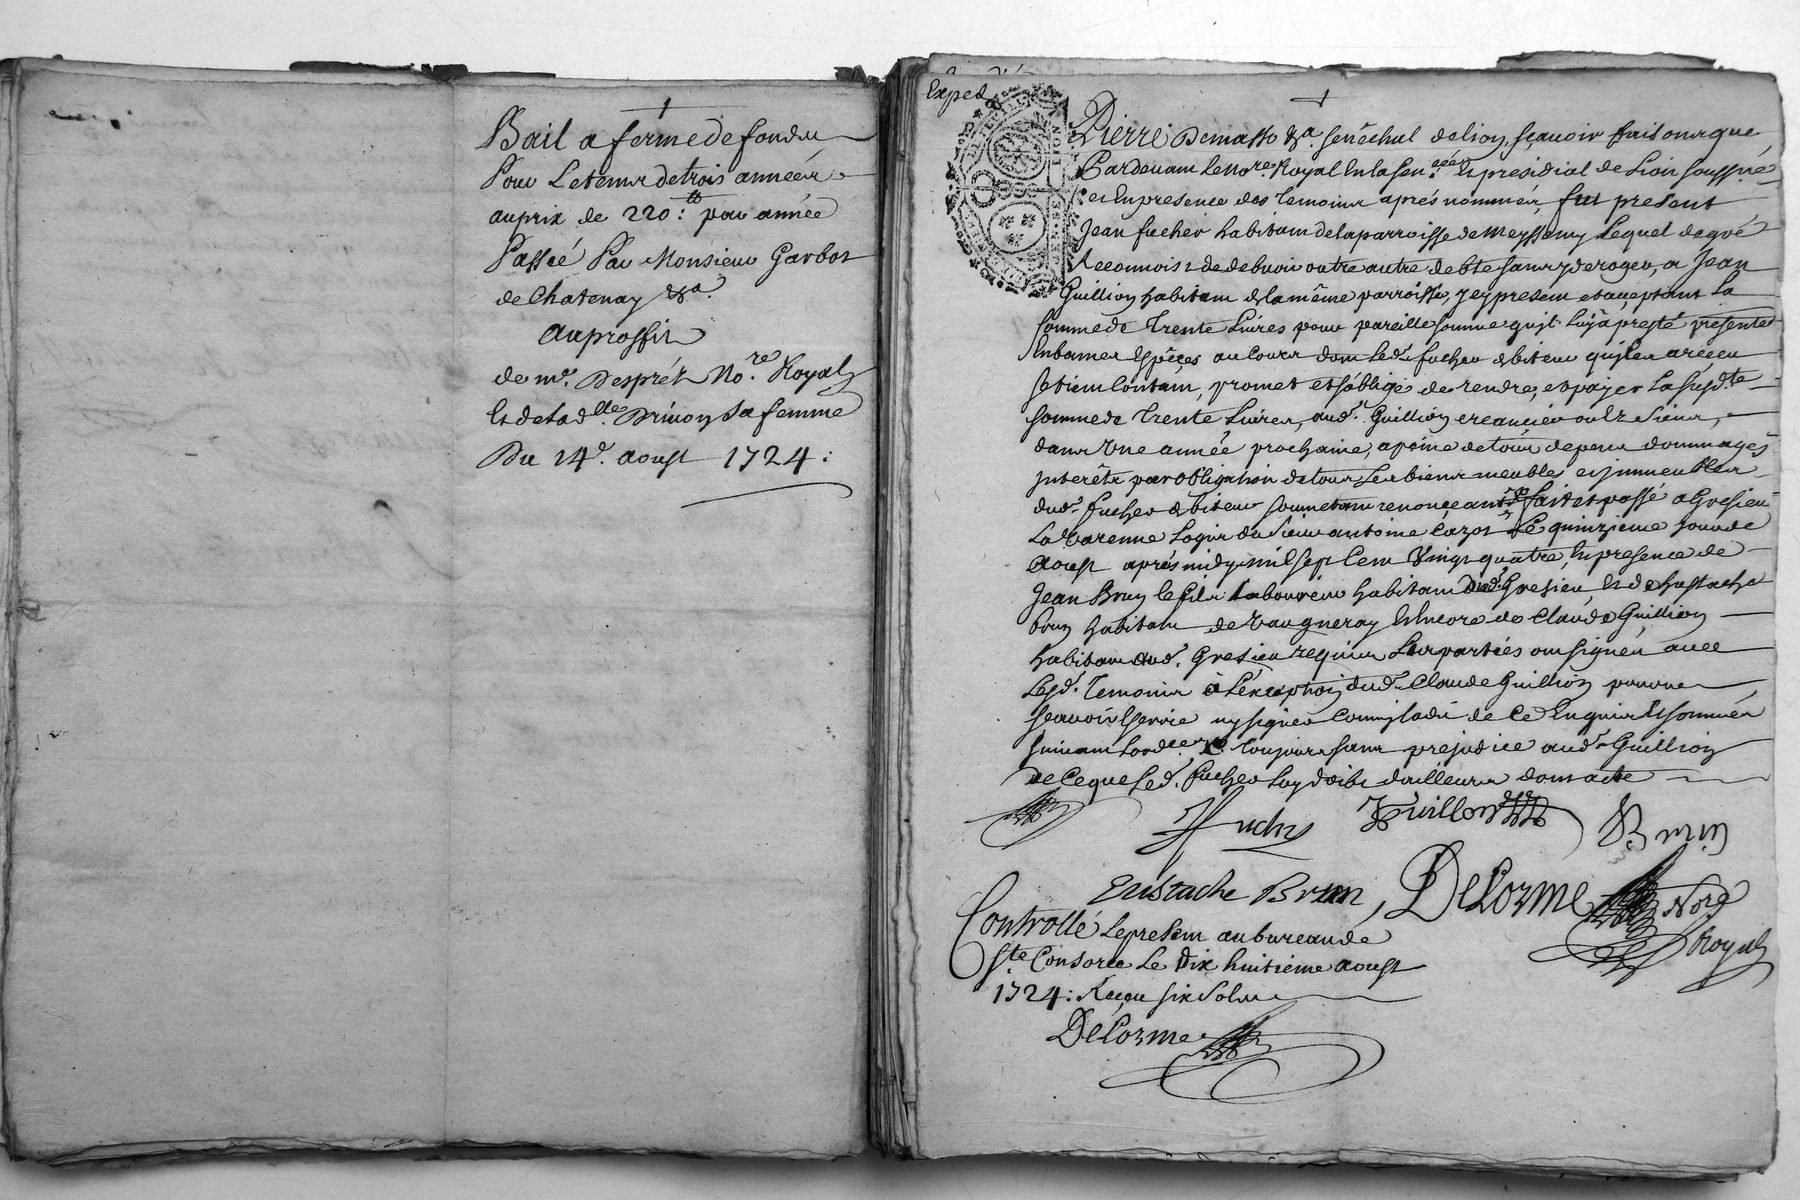 Bail a ferme de fonds
Pour Le temps de trois années
au prix de 220 ₶: par année
Passé Par Monsieur Garbot
de Chatenay &a.
au proffit
de mr. Desprez No.re Royal
Et de lad.lle Drivon Sa femme
Du 14e. aoust 1724:
Exped
Pierre Demasso &a. senechal de lion, sçavoir faisons que
Pardevant Le no.re Royal En la sen.cée Et presidial de Lion soussigné
et En presence des temoins aprés nommés, fut present
Jean fucher habitant de la parroisse de Meyssemy Lequel de gré
Reconnoist de debvoir outre autre debte sans y deroger, a Jean
Guillion habitant de la même parroisse, y ey present et acceptant La
somme de Trente Livres pour pareille somme qu'il luy a presté presente
En bonnes Espéces au cours dont Led. fucher debiteur qui les a réçeu
se tient Contant, promet et s'oblige de rendre, et payer La susd.te
somme de Trente Livres, aud. Guillion creancier ou Ez siens,
dans Une année prochaine, a peine de tous depens dommages
Interêts par obligation de tous Ses biens meubles et jmmeubles
dud. fucher debiteur soumettant renonceant &a fait et passé a Gresieu
La Varenne Logis du sieur antoine Cazot Le quinzieme jour de
Aoust aprés midy mil sept cent Vingt quatre, En presence de
Jean Brun le fils Laboureur habitant dud. Gresieu, Et de Eustache
brun habitant de Vaugneray Et encore de Claude Guillion
habitant aud. Gresieu requis Les parties ont signéz avec
Lesd. Temoins à L'exception dud. Claude Guillion pour ne
sçavoir Escrire ny signer Comm'il a dit de ce Enquis Et sommés
suivant Lord.ce &a. Toujours sans prejudice aud. Guillion
de Ce que Led. fucher Luy doibt d'ailleurs dont acte
JFucher JGuillon JBrun
Eustache Brun, DeLorme Nore
Royal
Controllé Le present au bureau de
Ste. Consorce Le Dix huitieme aoust
1724: Reçeu six sols
DeLorme